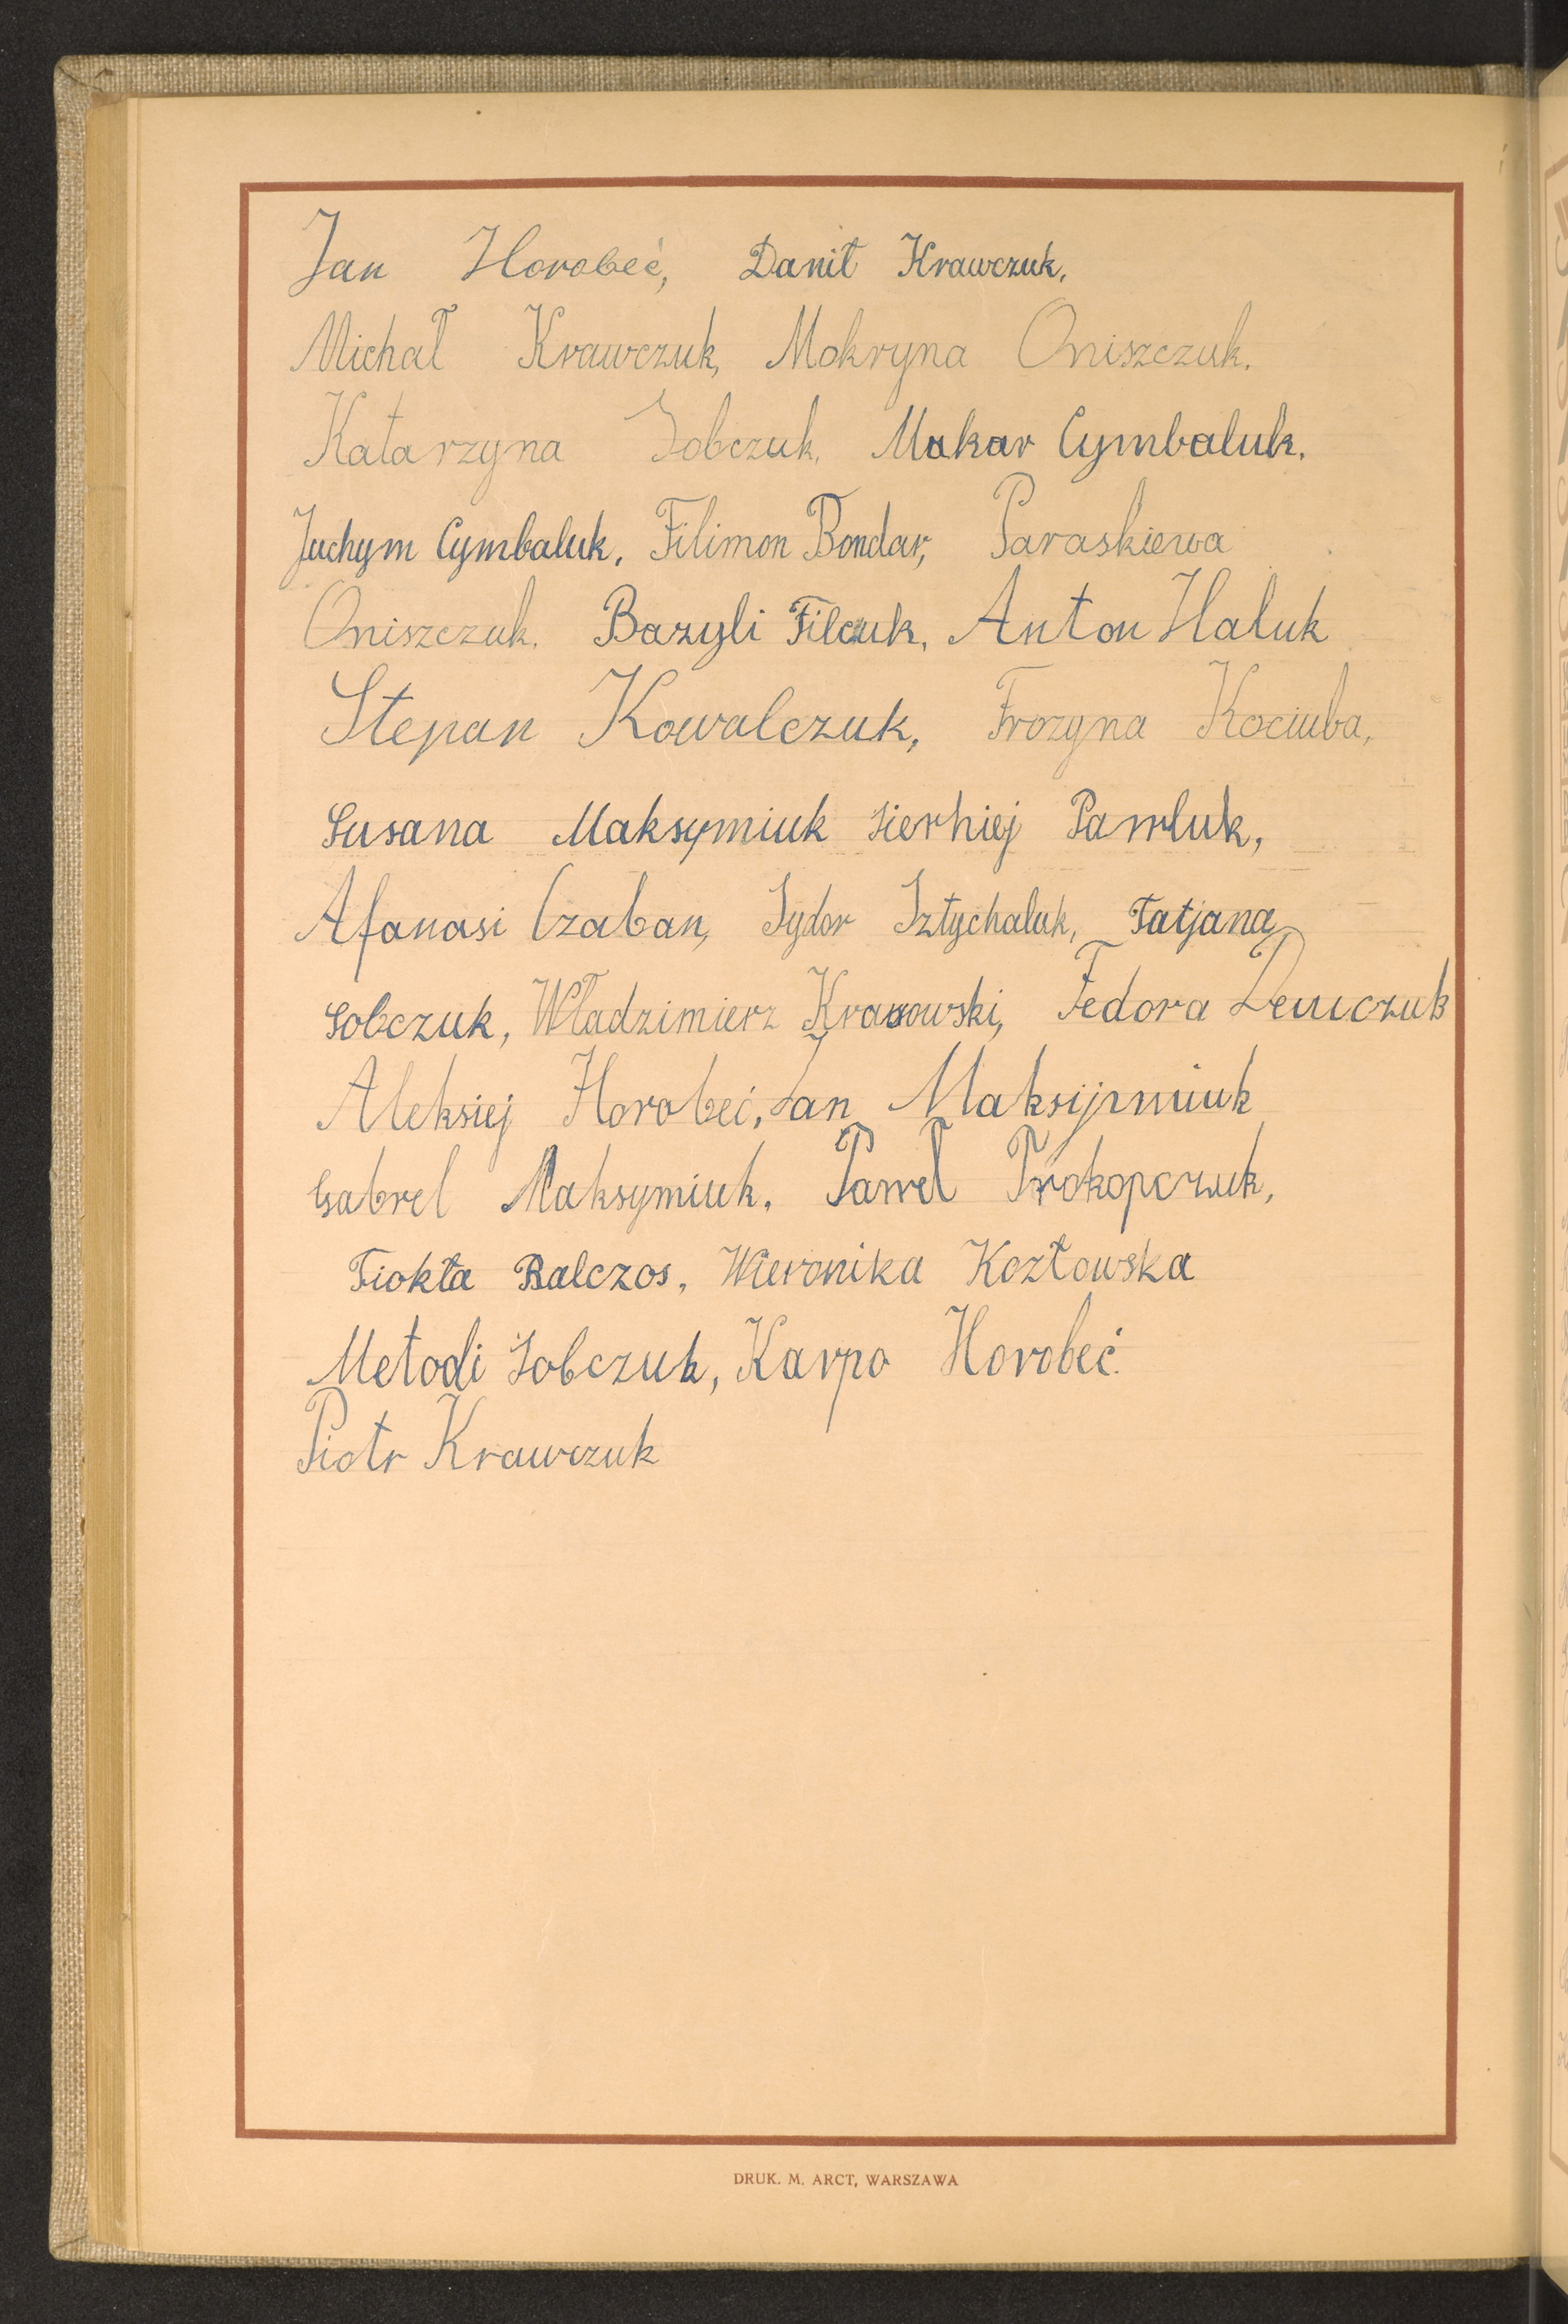 Jan Horobeć, Danił Krawczuk.
Michał Krawczuk, Mokryna Oniszczuk.
Katarzyna Sobczuk, Makar Cymbaluk.
Juchym Cymbaluk, Filimon Bondar, Paraskiewa
Oniszczuk. Bazyli Filczuk, Anton Haluk
Stepan Kowalczuk, Frozyna Kociuba,
Susana Maksymiuk Sierhiej Pawluk,
Afanasi Czaban, Sydor Sztychaluk, Tatjana
Sobczuk, Władzimierz Krasowski, Fedora Demczuk
Aleksiej Horobeć, Jan Maksijmiuk
Gabrel Maksymiuk, Paweł Prokopczuk,
Fiokła Balczos, Wieronika Kozłowska
Metodi Sobczuk, Karpo Horobeć.
Piotr Krawczuk
DRUK. M. ARCT, WARSZAWA